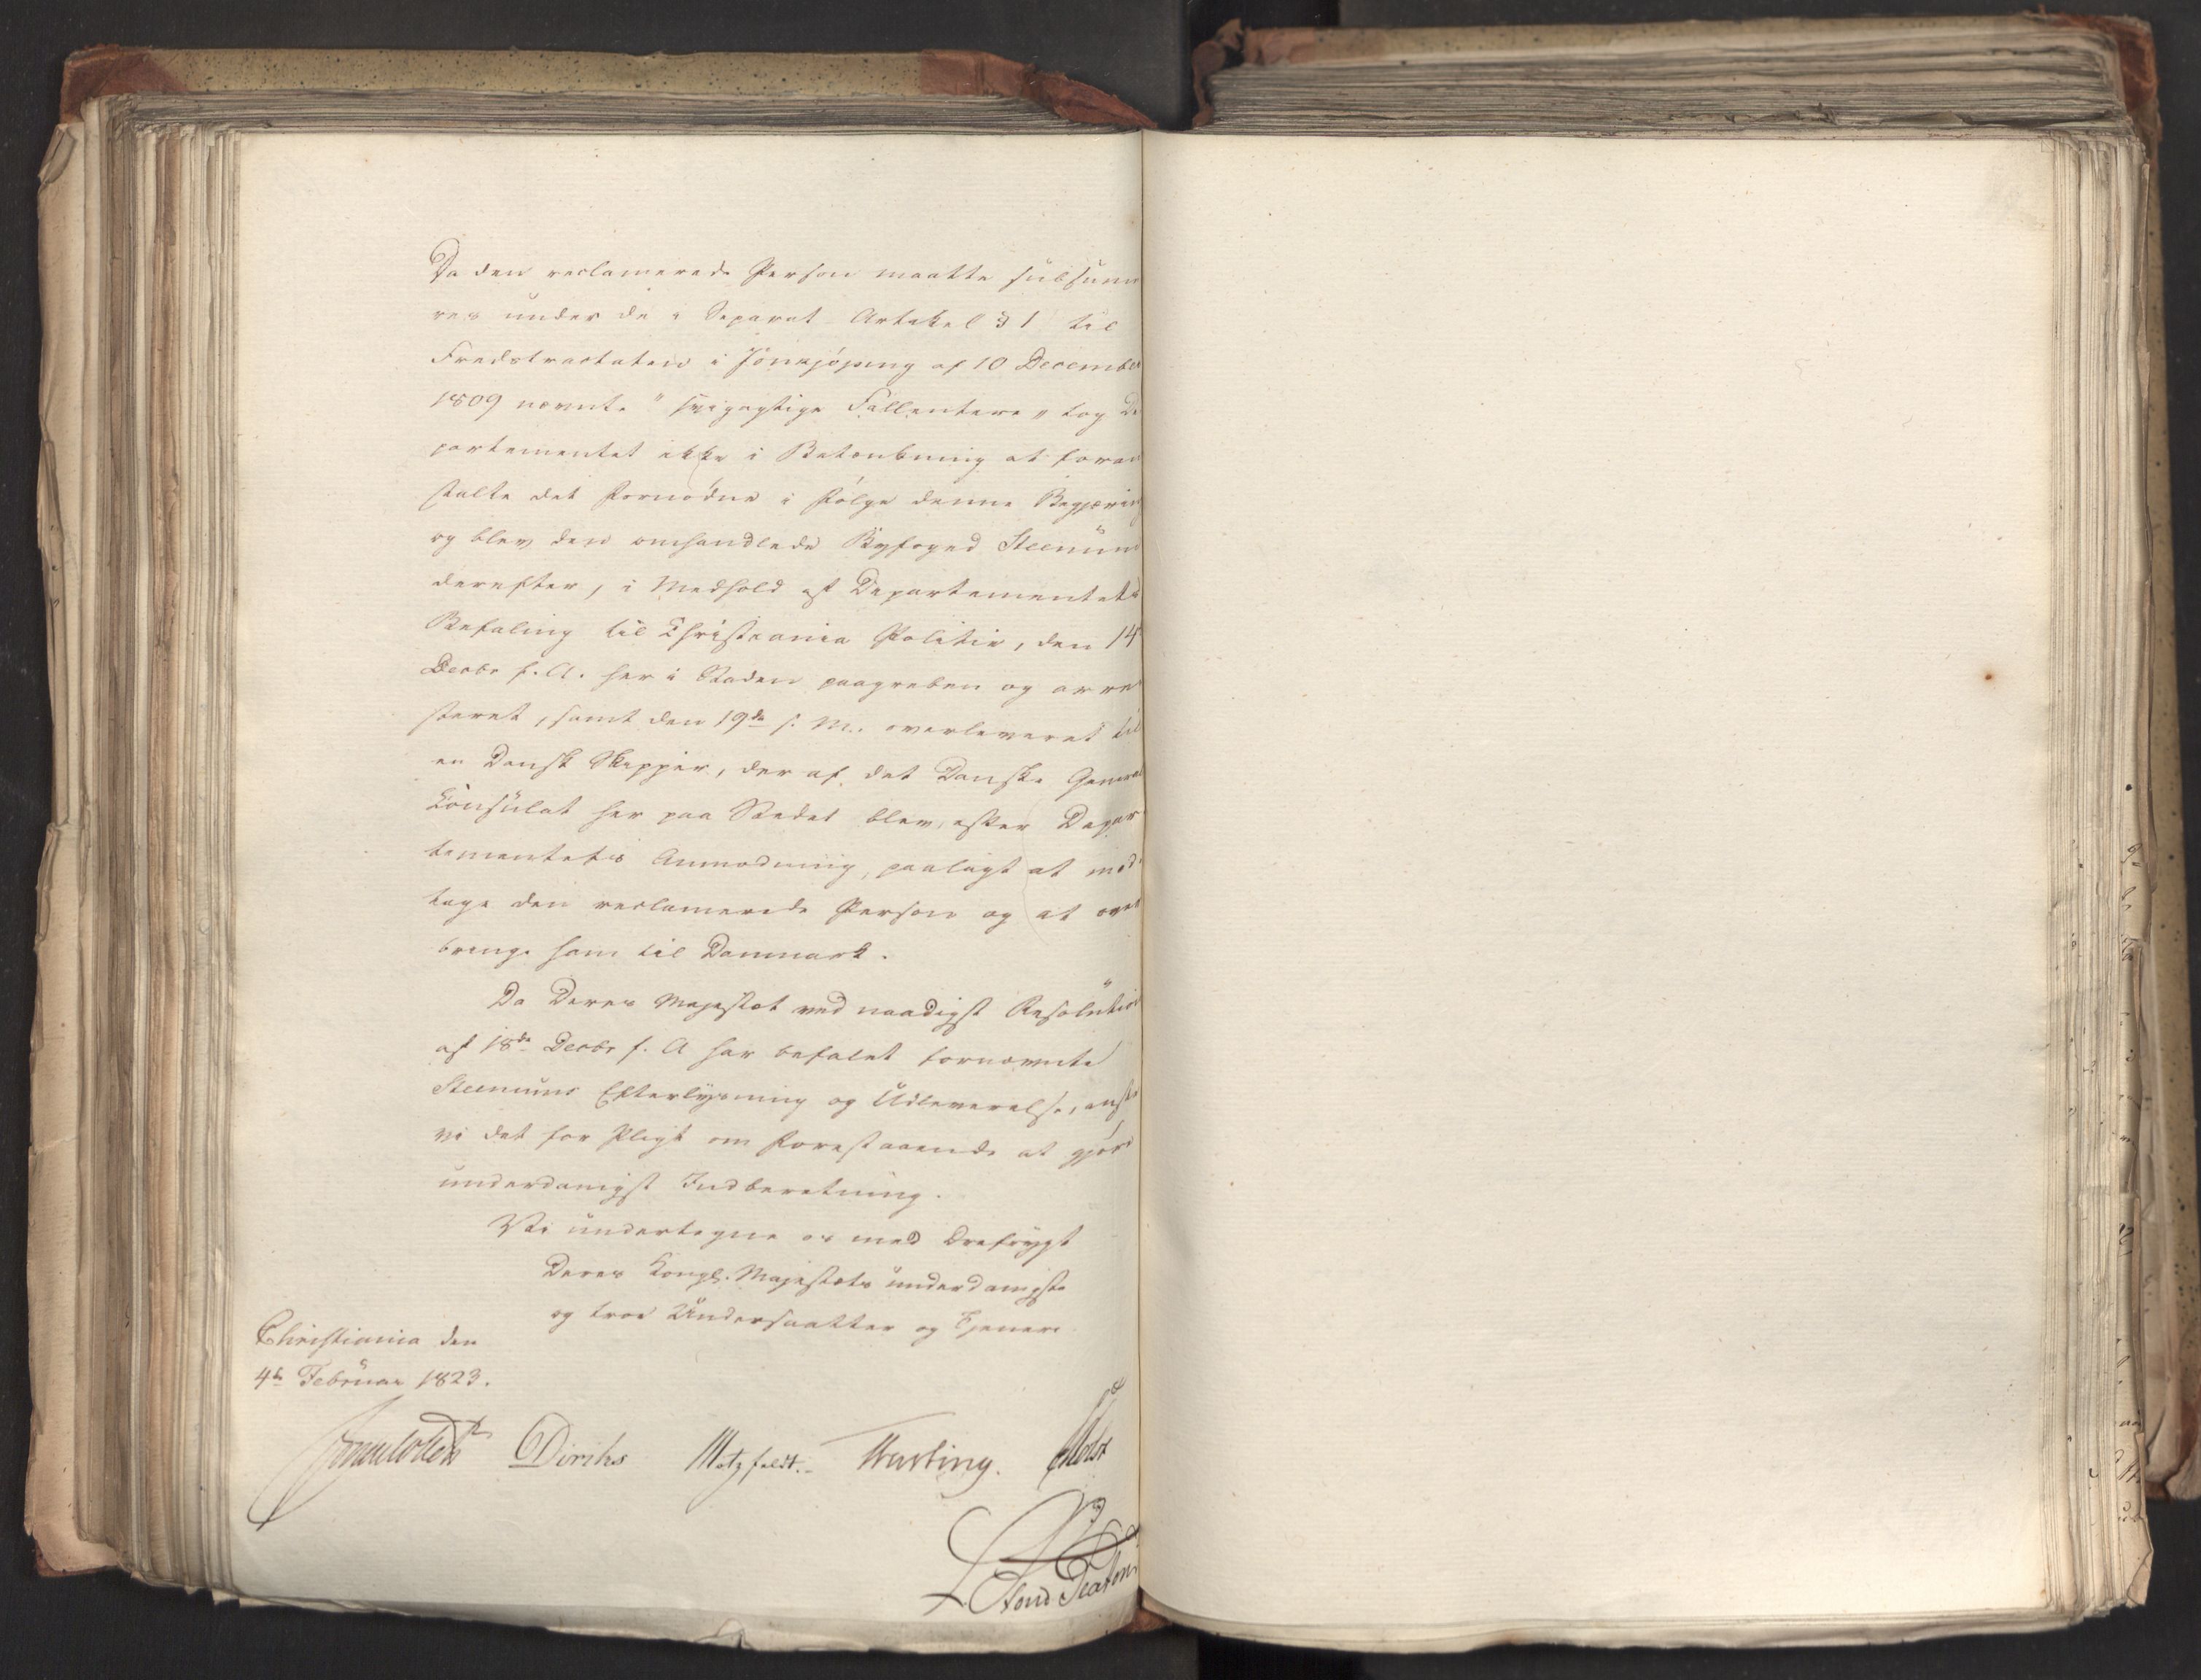 Da den reclamerede Person maatte subsume
res under de i Separat Artikel § 1 til
Fredstractaten i Jönkjöping af 10 December
1809 nævnte "svigagtige Fallentere" tog De
partementet ikke i Betænkning at foran
stalte det Fornødne i Følge denne Begjæring
og blev den omhandlede Byfoged Steenum
derefter, i Medhold af Departementets
Befaling til Christiania Politie, den 14
Decbr f. A. her i Staden paagreben og arre
steret, samt den 19de s. M. overleveret til
en Dansk Skipper, der af det Danske General
Consulat her paa Stedet blev, efter Depar
tementets Anmodning, paalagt at mod
tage den reclamerede Person og at over
bringe ham til Danmark.
Da Deres Majestæt ved naadigst Resolution
af 18de Decbr f. A har befalet fornævnte
Steenums Efterlysning og Udleverelse, ansee
vi det for Pligt om Forestaaende at gjøre
underdanigst Indberetning.
Vi undertegne os med Ærefrygt
Deres Kongl. Majestæts underdanigste
og troe Undersaatter og Tjenere
Christiania den
4de Februar 1823.
Diriks Motzfeldt. Treschow Holst